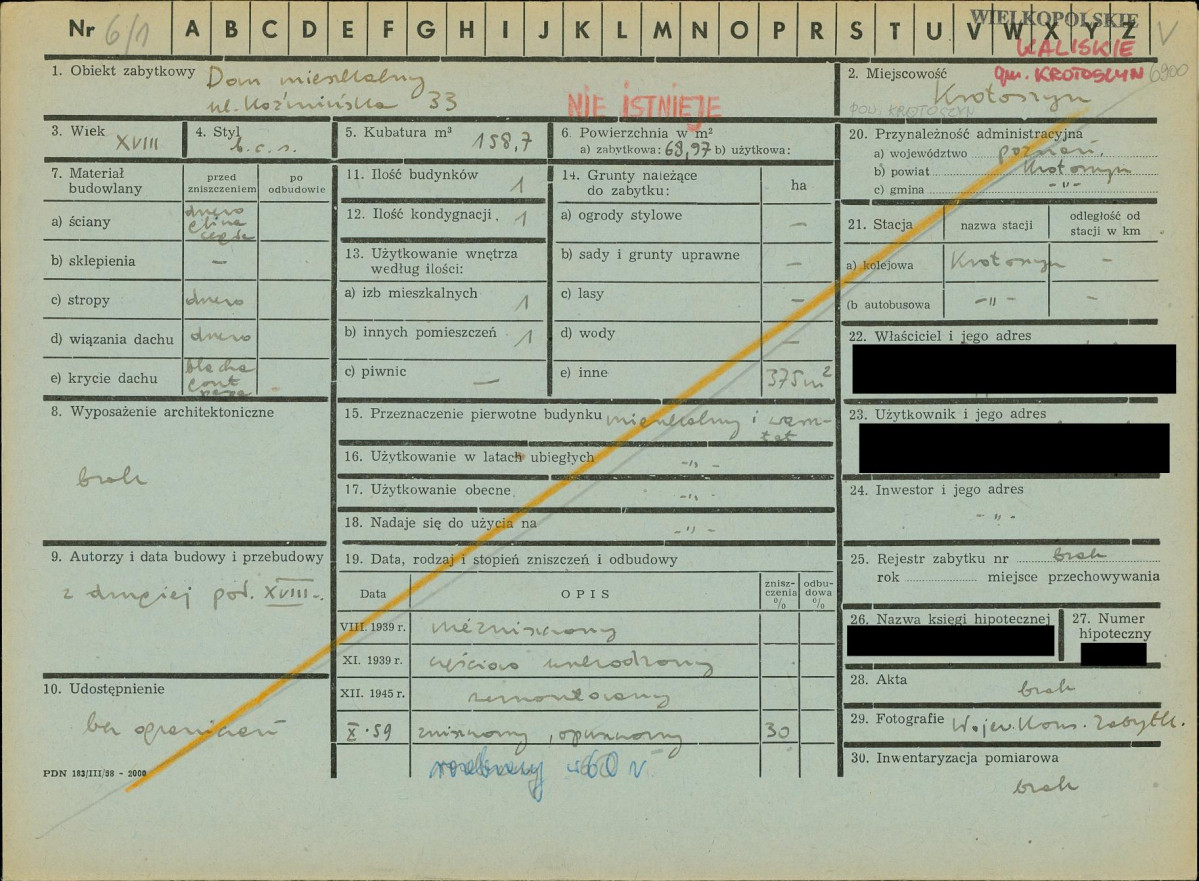 Nr 6/1 A B C D E F G H I J K L M N O P R S T U V W X Y Z V
WIELKOPOLSKIE
KALISKIE
gm. KROTOSZYN 6900
1. Obiekt zabytkowy Dom mieszkalny
ul. Koźmińska 33
NIE ISTNIEJE
2. Miejscowość
Krotoszyn
POW. KROTOSZYN
3. Wiek XVIII
4. Styl b.c.s.
5. Kubatura m³ 158,7
6. Powierzchnia w m²
a) zabytkowa: 68,97 b) użytkowa:
7. Materiał budowlany
przed zniszczeniem
po odbudowie
a) ściany drewno glina cegła
b) sklepienia —
c) stropy drewno
d) wiązania dachu drewno
e) krycie dachu blacha
8. Wyposażenie architektoniczne
brak
9. Autorzy i data budowy i przebudowy
z drugiej poł. XVIII-.
10. Udostępnienie
bez ograniczeń
PDN 183/III/58 - 2000
11. Ilość budynków 1
12. Ilość kondygnacji. 1
13. Użytkowanie wnętrza
według ilości:
a) izb mieszkalnych 1
b) innych pomieszczeń 1
c) piwnic —
14. Grunty należące
do zabytku:
ha
a) ogrody stylowe —
b) sady i grunty uprawne —
c) lasy —
d) wody —
e) inne 375 m²
15. Przeznaczenie pierwotne budynku mieszkalny i warsz-
tat
16. Użytkowanie w latach ubiegłych -"-
17. Użytkowanie obecne -"-
18. Nadaje się do użycia na -"-
19. Data, rodzaj i stopień zniszczeń i odbudowy
Data
OPIS
znisz-
czenia
%
odbu-
dowa
%
VIII. 1939 r. niezniszczony
XI. 1939 r. częściowo uszkodzony
XII. 1945 r. remontowany
X.59 zniszczony, opuszczony 30
rozebrany -60 r.
20. Przynależność administracyjna
a) województwo poznań.
b) powiat Krotoszyn
c) gmina -"-
21. Stacja
nazwa stacji
odległość od
stacji w km
a) kolejowa Krotoszyn -
(b autobusowa -"- -
22. Właściciel i jego adres
23. Użytkownik i jego adres
24. Inwestor i jego adres
-"-
25. Rejestr zabytku nr brak
rok miejsce przechowywania
26. Nazwa księgi hipotecznej
27. Numer
hipoteczny
28. Akta
brak
29. Fotografie Wojew. Kons. Zabytk.
30. Inwentaryzacja pomiarowa
brak